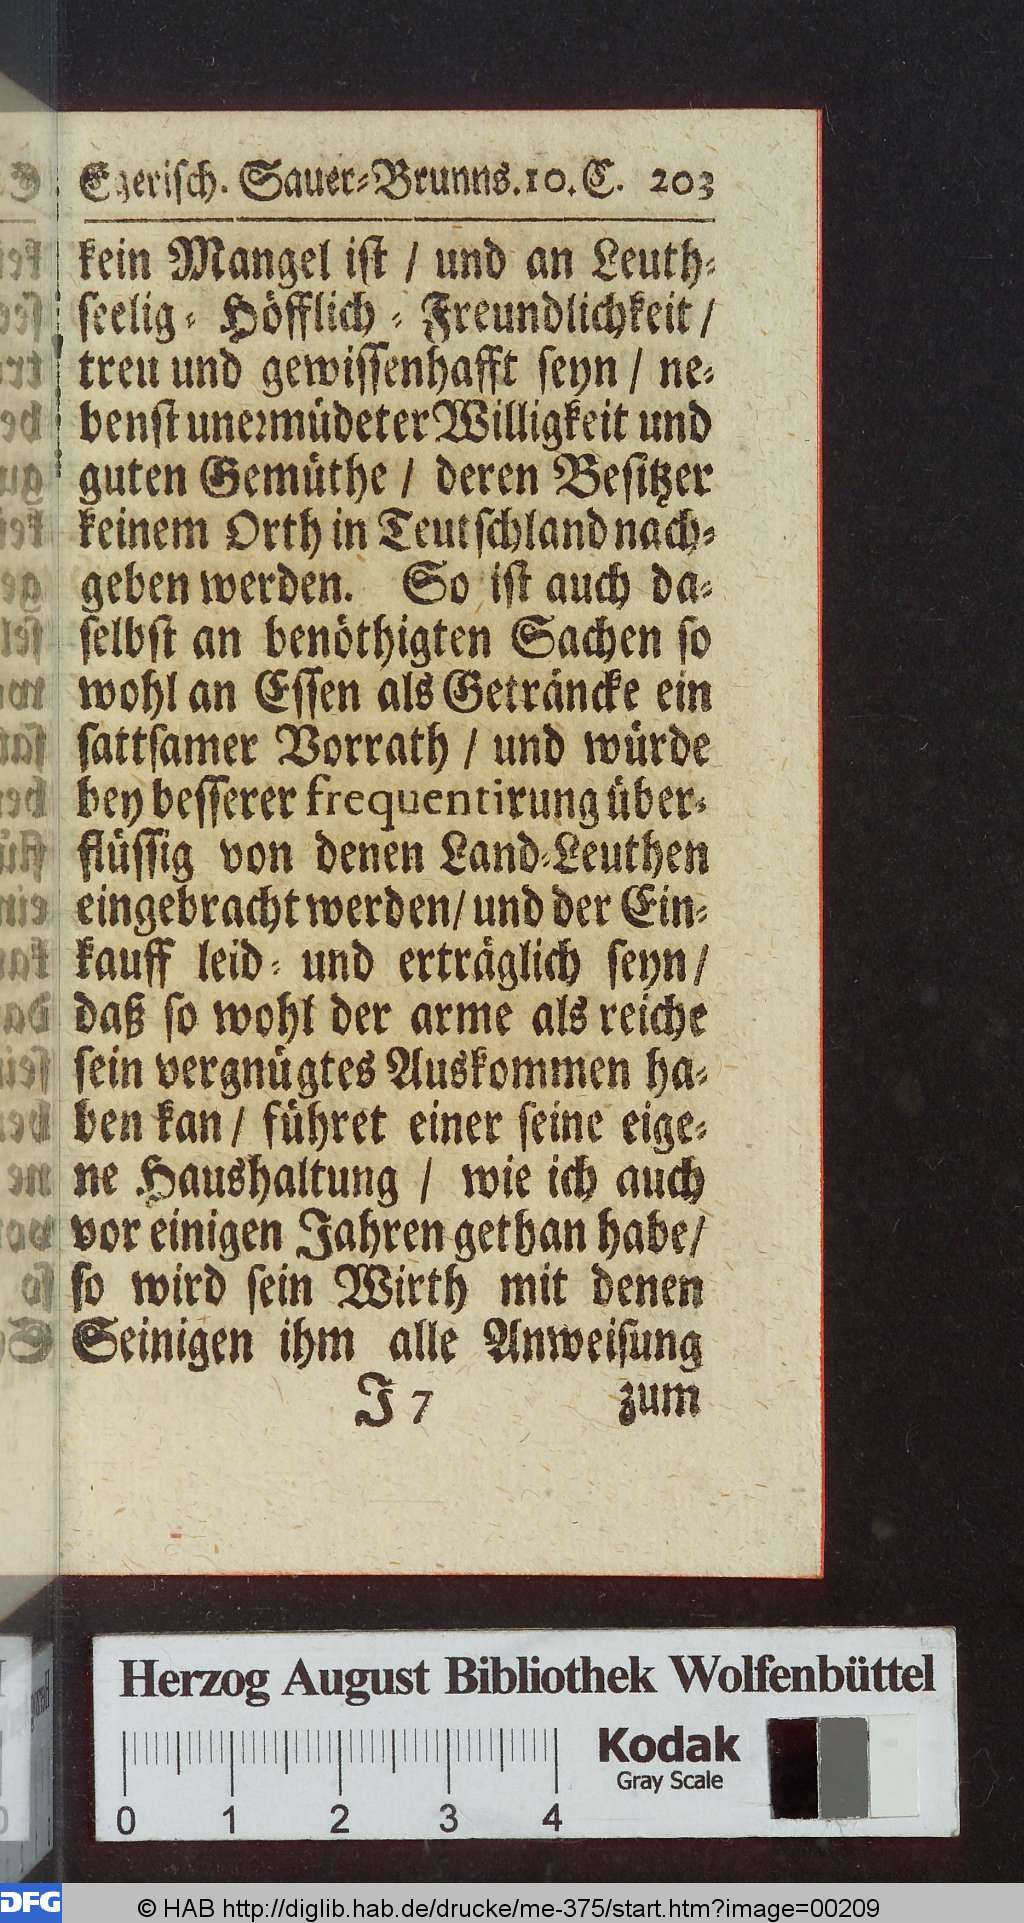 Egerisch. Sauer-Brunns. 10. C. 203
kein Mangel ist / und an Leuth-
seelig- Höfflich- Freundlichkeit /
treu und gewissenhafft seyn / ne-
benst unermüdeter Willigkeit und
guten Gemüthe / deren Besitzer
keinem Orth in Teutschland nach-
geben werden. So ist auch da-
selbst an benöthigten Sachen so
wohl an Essen als Geträncke ein
sattsamer Vorrath / und würde
bey besserer frequentirung über-
flüssig von denen Land-Leuthen
eingebracht werden / und der Ein-
kauff leid- und erträglich seyn /
daß so wohl der arme als reiche
sein vergnügtes Auskommen ha-
ben kan / führet einer seine eige-
ne Haushaltung / wie ich auch
vor einigen Jahren gethan habe /
so wird sein Wirth mit denen
Seinigen ihm alle Anweisung
J 7 zum
Herzog August Bibliothek Wolfenbüttel
Kodak
Gray Scale
0 1 2 3 4
DFG © HAB http://diglib.hab.de/drucke/me-375/start.htm?image=00209